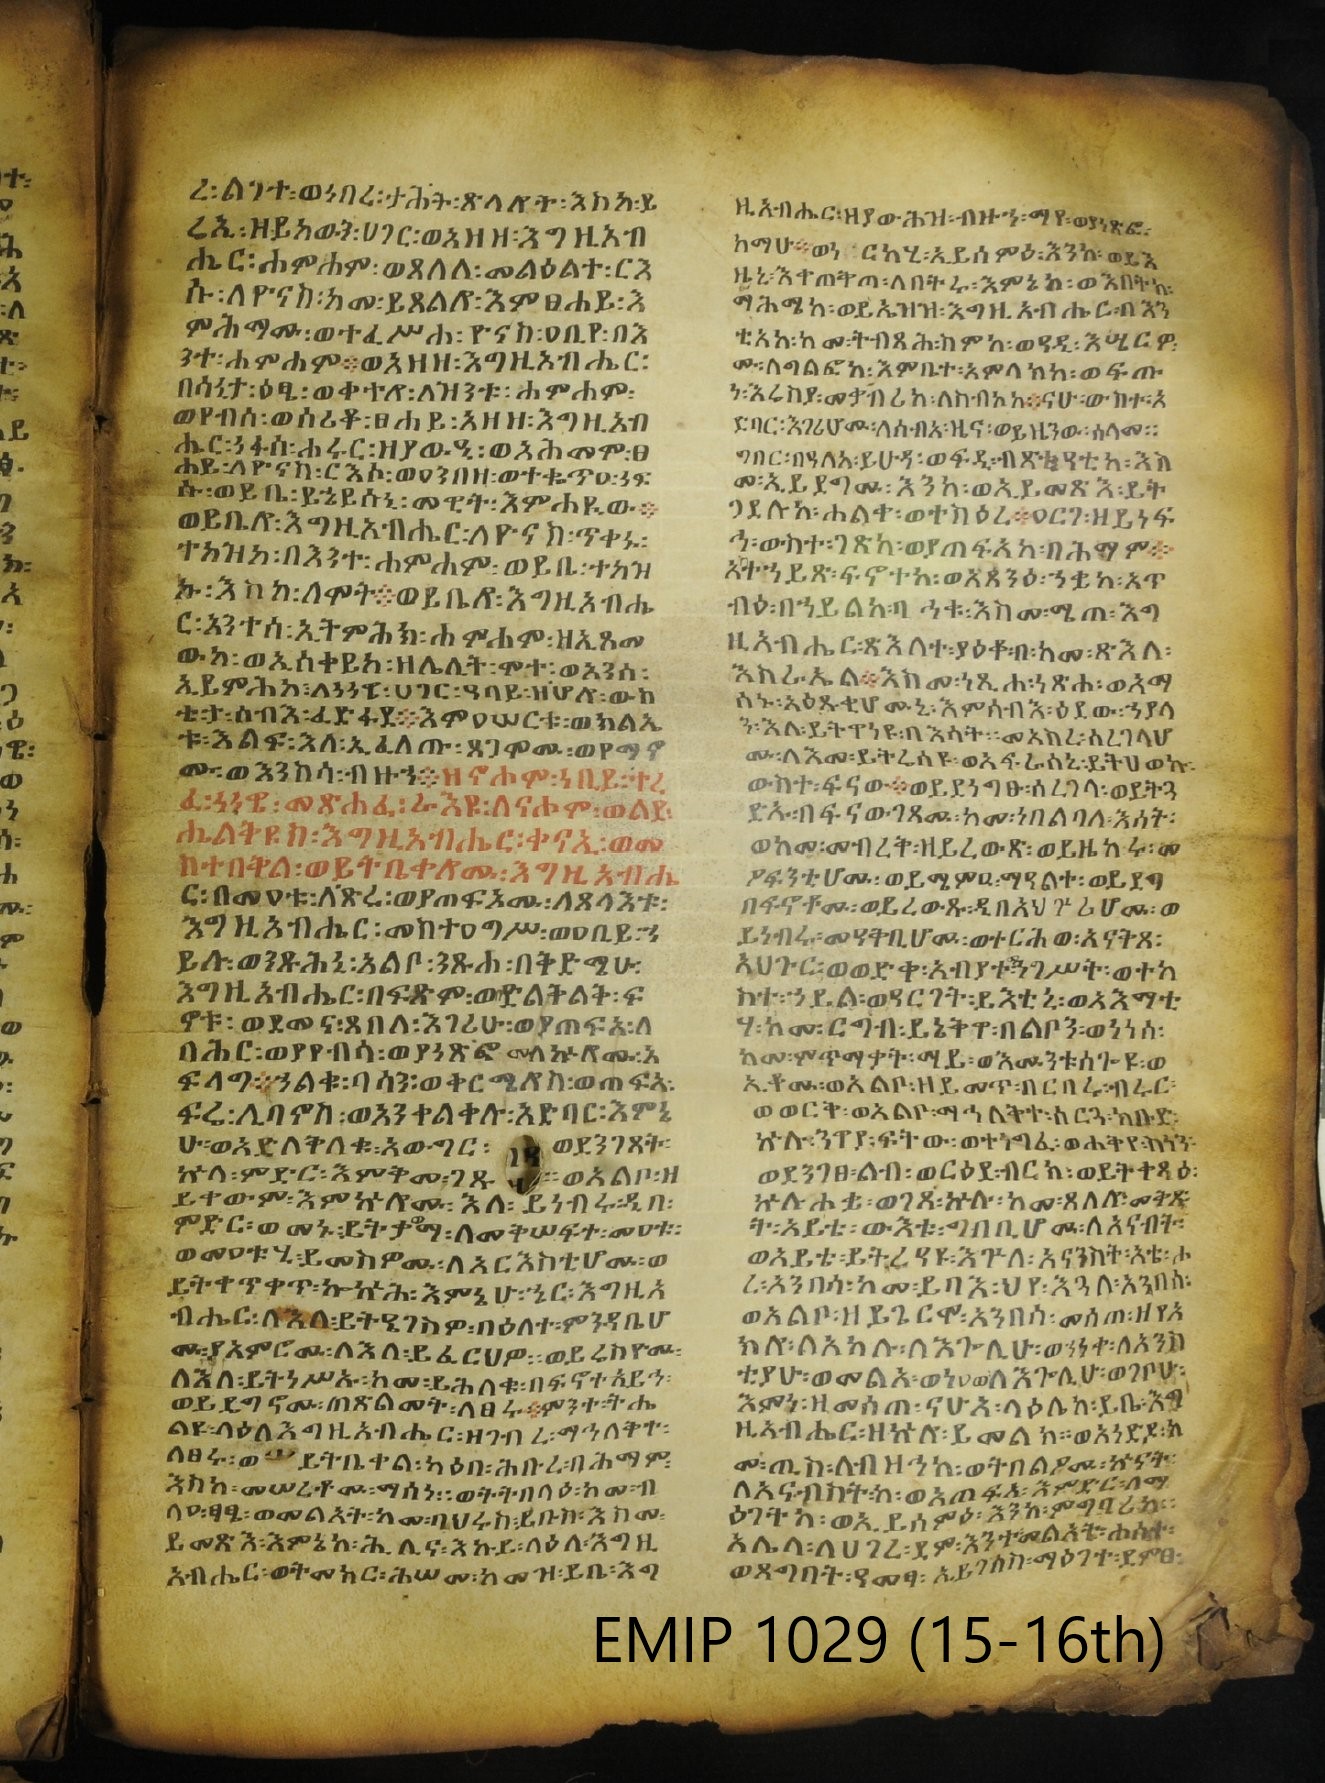 ረ፡ልገተ፡ወነበረ፡ታሕት፡ጽላሎት፡እስከ፡ይ
ሬኢ፡ዘይከውን፡ሀገር፡ወአዘዘ፡እግዚአብ
ሔር፡ሐምሐም፡ወጸለለ፡መልዕልተ፡ርእ
ሱ፡ለዮናስ፡ከመ፡ይጸልሎ፡እምፀሐይ፡እ
ምሕማሙ፡ወተፈሥሐ፡ዮናስ፡ዐቢየ፡በእ
ንተ፡ሐምሐም፡ወአዘዘ፡እግዚአብሔር፡
በሳኒታ፡ዕፂ፡ወቀተሎ፡ለዝንቱ፡ሐምሐም፡
ወየብሰ፡ወሰሪቆ፡ፀሐይ፡አዘዘ፡እግዚአብ
ሔር፡ነፋሰ፡ሐሩር፡ዘያውዒ፡ወአሕመሞ፡ፀ
ሐይ፡ለዮናስ፡ርእሶ፡ወዐንበዘ፡ወተቈጥዐ፡ነፍ
ሱ፡ወይቤ፡ይኄይሰኒ፡መዊት፡እምሐዪው
ወይቤሎ፡እግዚአብሔር፡ለዮናስ፡ጥቀኑ፡
ተከዝከ፡በእንተ፡ሐምሐም፡ወይቤ፡ተከዝ
ኩ፡እስከ፡ለሞት፡ወይቤሎ፡እግዚአብሔ
ር፡አንተሰ፡አትምሕክ፡ሐምሐም፡ዘኢጻመ
ውከ፡ወኢሰቀይከ፡ዘሌሊት፡ሞተ፡ወአንሰ፡
ኢይምሕክ፡ለነነዌ፡ሀገር፡ዓባይ፡ዘሀሎ፡ውስ
ቴታ፡ሰብእ፡ፈድፋደ፡እምዐሠርቱ፡ወክልኤ
ቱ፡እልፍ፡እለ፡ኢፈለጡ፡ጸጋሞሙ፡ወየማኖ
ሙ፡ወእንስሳ፡ብዙኅ፡ዘናሖም፡ነቢይ፡ተረ
ፈ፡ነነዌ፡መጽሐፈ፡ራእዩ፡ለናሖም፡ወልደ፡
ሔልትዩስ፡እግዚአብሔር፡ቀናኢ፡ወመ
ስተበቅል፡ወይትቤቀሎሙ፡እግዚአብሔ
ር፡በመዐቱ፡ለጽሩ፡ወያጠፍኦሙ፡ለጸላእቱ፡
እግዚአብሔር፡መስተዐግሥ፡ወዐቢይ፡ኀ
ይሉ፡ወንጹሕኒ፡አልቦ፡ንጹሐ፡በቅድሜሁ፡
እግዚአብሔር፡በፍጽም፡ወድልቅልቅ፡ፍ
ኖቱ፡ወደመና፡ጸበለ፡እገሪሁ፡ወያጠፍኣ፡ለ
ባሕር፡ወያየብሳ፡ወያነጽፎ፡ለኵሎሙ፡አ
ፍላግ፡ኀልቁ፡ባሳን፡ወቀርሜሎስ፡ወጠፍአ፡
ፍሬ፡ሊባኖስ፡ወአንቀልቀሉ፡አድባር፡እምኔ
ሁ፡ወአድለቅለቁ፡አውግር፡ወደንገጸት፡
ኵላ፡ምድር፡እምቅመ፡ገጹ፡ወአልቦ፡ዘ
ይቀውም፡እምኵሎሙ፡እለ፡ይነብሩ፡ዲበ፡
ምድር፡ወመኑ፡ይትቃወማ፡ለመቅሠፍተ፡መዐቱ፡
ወመዐቱሂ፡ይመስዎሙ፡ለአርእስቲሆሙ፡ወ
ይትቀጥቀጥ፡ኰኵሕ፡እምኔሁ፡ኄር፡እግዚአ
ብሔር፡ለእለ፡ይትዔገስዎ፡በዕለተ፡ምንዳቤሆ
ሙ፡ያአምሮሙ፡ለእለ፡ይፈርህዎ፡ወይሬስዮሙ፡
ለእለ፡ይትነሥኡ፡ከመ፡ይሕለቁ፡በፍኖተ፡አይኅ፡
ወይዴግኖሙ፡ጠጽልመት፡ለፀሩ፡ምንተ፡ትሔ
ልዩ፡ላዕለ፡እግዚአብሔር፡ዘገብረ፡ማኅለቅተ፡
ለፀሩ፡ወ ይትቤቀል፡ካዕበ፡ሕቡረ፡በሕማም፡
እስከ፡መሠረቶሙ፡ማሰነ፡ወትትበላዕ፡ከመ፡ብ
ይመጽእ፡እምኔከ፡ሕሊና፡እኩይ፡ላዕለ፡እግዚ
አብሔር፡ወትመክር፡ሕሠመ፡ከመዝ፡ይቤ፡እግ
ዚአብሔር፡ዘያውሕዝ፡ብዙኀ፡ማየ፡ወያነጽፎ፡
ከማሁ፡ወነ ርከሂ፡ኢይሰምዕ፡እንከ፡ወይእ
ዜኒ፡እተጠቅጦ፡ለበትሩ፡እምኔከ፡ወእበትክ፡
ማሕሜከ፡ወይኤዝዝ፡እግዚአብሔር፡በእን
ቲአከ፡ከመ፡ትብጻሕ፡ስምከ፡ወዓዲ፡እሤርዎ
ሙ፡ለግልፎከ፡እምቤተ፡አምላክከ፡ወፍጡ
ነ፡እሬስያ፡መቃብሪከ፡ለስብኮከ፡ናሁ፡ውስተ፡አ
ድባር፡እገሪሆሙ፡ለሰብአ፡ዜና፡ወይዜንው፡ሰላመ።
ግበር፡በዓለከ፡ይሁዳ፡ወፍዲ፡ብጽዓቲከ፡እስ
መ፡ኢይደግሙ፡እንከ፡ወኢይመጽእ፡ይት
ገደሉከ፡ሐልቀ፡ወተስዕረ፡ዐርገ፡ዘይነፍ
ኅ፡ውስተ፡ገጽከ፡ወያጠፍአከ፡በሕማም
አተኀይጽ፡ፍኖተከ፡ወአጸንዕ፡ኀቌከ፡አጥ
ብዕ፡በኀይልከ፡ባ ኅቱ፡እስመ፡ሜጠ፡እግ
ዚአብሔር፡ጽእለተ፡ያዕቆብ፡ከመ፡ጽእለ፡
እስራኤል፡እስመ፡ነጺሐ፡ነጽሐ፡ወአማ
ሰኑ፡አዕጹቂሆሙኒ፡እምሰብእ፡ዕደው፡ኀያላ
ን፡እለ፡ይትዋነዩ፡በእሳት፡መአከረ፡ሰረገላሆ
ሙ፡ለእመ፡ይትሬሰዩ፡ወአፍራስኒ፡ይትሀወኩ፡
ውስተ፡ፍናው፡ወይደነግፁ፡ሰረገላ፡ወይትጓ
ድኡ፡በፍናው፡ገጾሙ፡ከመ፡ነበልባለ፡እሳት፡
ወከመ፡መብረቅ፡ዘይረውጽ፡ወይዜከሩ፡መ
ዖፍንቲሆሙ፡ወይሜምዑ፡ማዓልተ፡ወይደግ
በፍኖቶሙ፡ወይረውጹ፡ዲበአህጉሪሆሙ፡ወ
ይነብሩ፡መዓቅቢሆሙ፡ወተርሕወ፡አናቅጸ፡
አህጉር፡ወወድቀ፡አብያተ፡ነገሥት፡ወተከ
ስተ፡ኀይል፡ወዓርገት፡ይእቲኒ፡ወአእማቲ
ሃ፡ከመ፡ርግብ፡ይኔቅዋ፡በልቦን፡ወነነሰ፡
ከመ፡ምጥማቃት፡ማይ፡ወእሙንቱሰ፡ጐዩ፡ወ
ኢቆሙ፡ወአልቦ፡ዘይመጥ፡በርበሩ፡ብሩር፡
ወወርቅ፡ወአልቦ፡ማኅለቅተ፡ሰርጓ፡ክቡድ፡
ኵሉ፡ንዋያ፡ፍትው፡ወተነግፈ፡ወሐቅየ፡ከነነ፡
ወደንገፀ፡ልብ፡ወርዕደ፡ብርከ፡ወይትተጻዕ፡
ኵሉ፡ሐቌ፡ወገጸ፡ኵሉ፡ከመ፡ጸለሎ፡መቅጹ
ት፡አይቴ፡ውእቱ፡ግበቢሆሙ፡ለአናብት፡
ወአይቴ፡ይትረዓዩ፡እጕለ፡አናንስት፡አቴ፡ሖ
ረ፡አንበሳ፡ከመ፡ይባእ፡ህየ፡እጓለ፡አንበሳ፡
ወአልቦ፡ዘይጌርሞ፡አንበሳ፡መሰጠ፡ዘየአ
ክሎ፡ለአከሉ፡ለእጐሊሁ፡ወኀነቀ፡ለአንስ
ቲያሁ፡ወመልአ፡ወነዐወ፡ለእጐሊሁ፡ወገቦሁ፡
እምነ፡ዘመሰጠ፡ናሁ፡አ፡ላዕሌከ፡ይቤ፡እግ
ዚአብሔር፡ዘኵሎ፡ይመልክ፡ወአነድድ፡ከ
መ፡ጢስ፡ለብዝኅከ፡ወትበልዖሙ፡ኵናት፡
ለአናብስት፡ከ፡ወአጠፍእ፡እምድር፡ለማ
ዕገትከ፡ወኢይሰምዕ፡እንከ፡ምግባሪከ፡
አሌላ፡ለሀገረ፡ደም፡እንተ፡መልአት፡ሐሰተ፡
ወጸግበት፡ዓመፃ፡ኢይገስስ፡ማዕገተ፡ደምፀ፡
EMIP 1029 (15-16th)